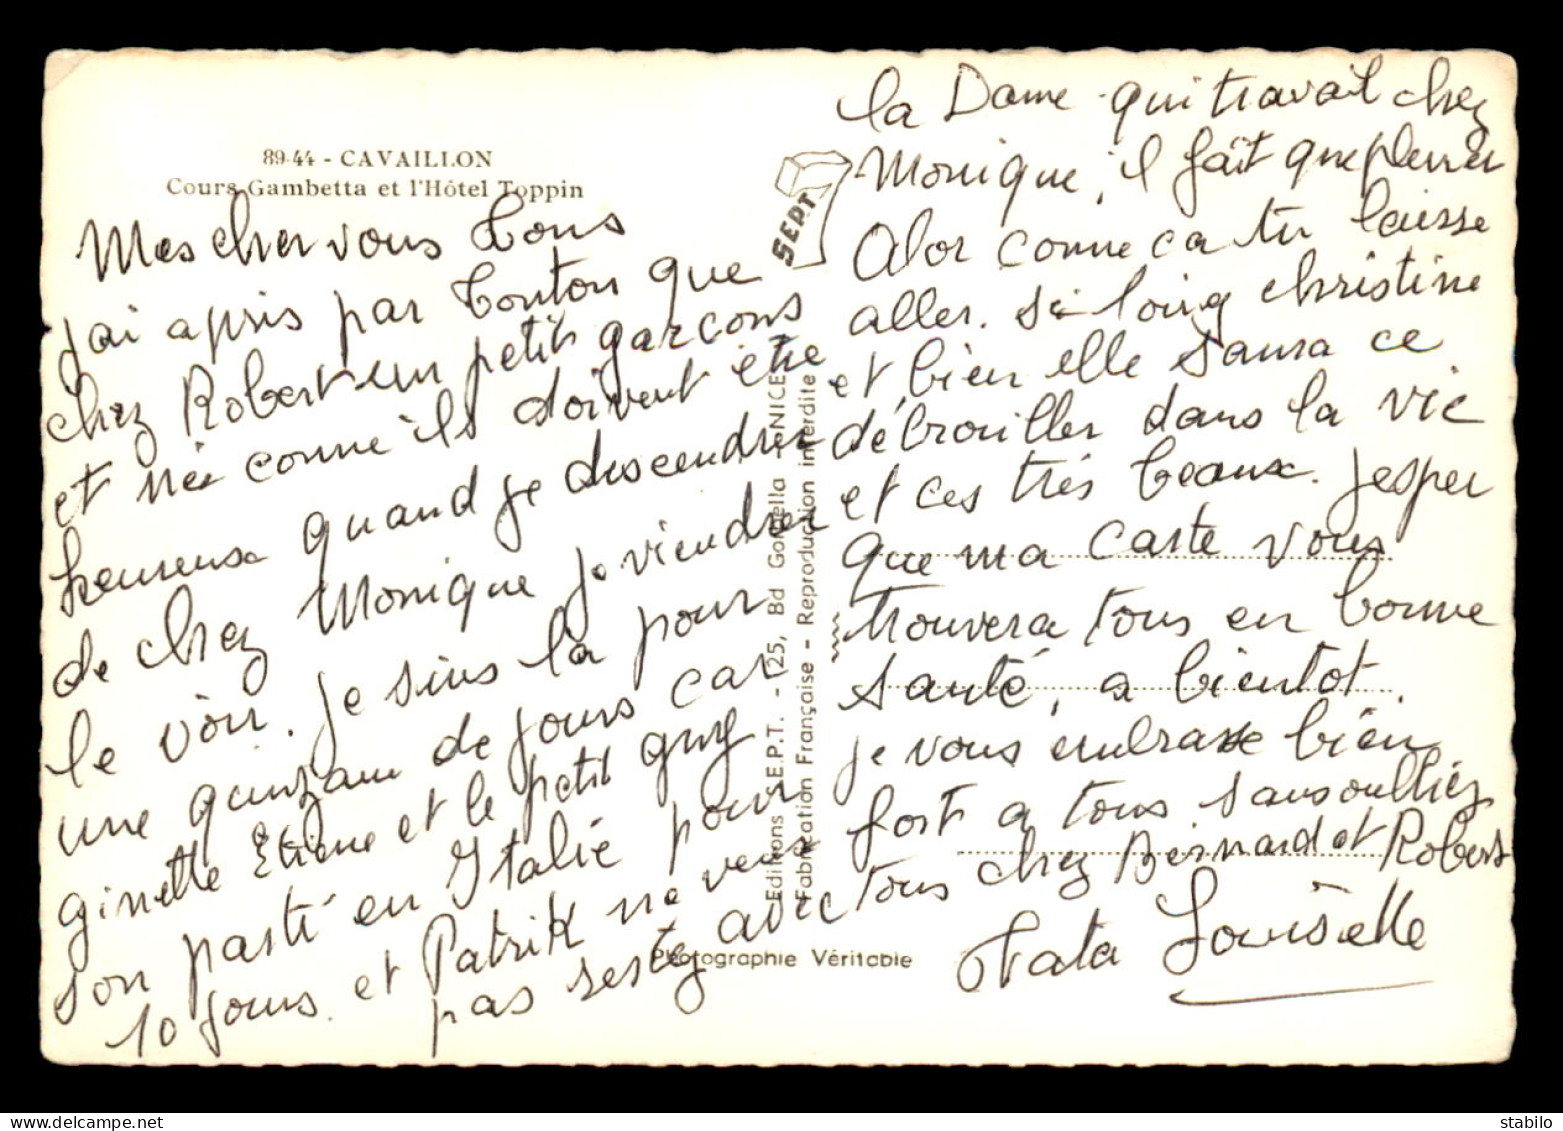 89-44 - CAVAILLON
Cours Gambetta et l'Hôtel Toppin
Mes cher vous Tous
j'ai apris par Tonton que
chez Robert un petit garcons
et née comme ils doivent être
heureuse quand je descendrer
de chez Monique je viendrer
le voir. je suis là pour
une quinzaine de jours car
ginette Etiene et le petit guy
son parti en Italie pour
10 jours. et Patrik ne veux
pas restez avec
la Dame qui travail chez
Monique, il fait que pleurer
Alor comme ca tu laisse
aller. si loing christine
et bien elle saura ce
débrouiller dans la vie
et ces très beaux. j'esper
que ma carte vous
trouvera tous en bonne
santé, a bientot.
je vous embrasse bien
fort a tous sans oulliez
tous chez Bernard et Robert
Tata Louiselle
SEPT
Editions S.E.P.T. - 125, Bd Gorbella - NICE
Fabrication Française - Reproduction interdite
Photographie Véritable
stabilo